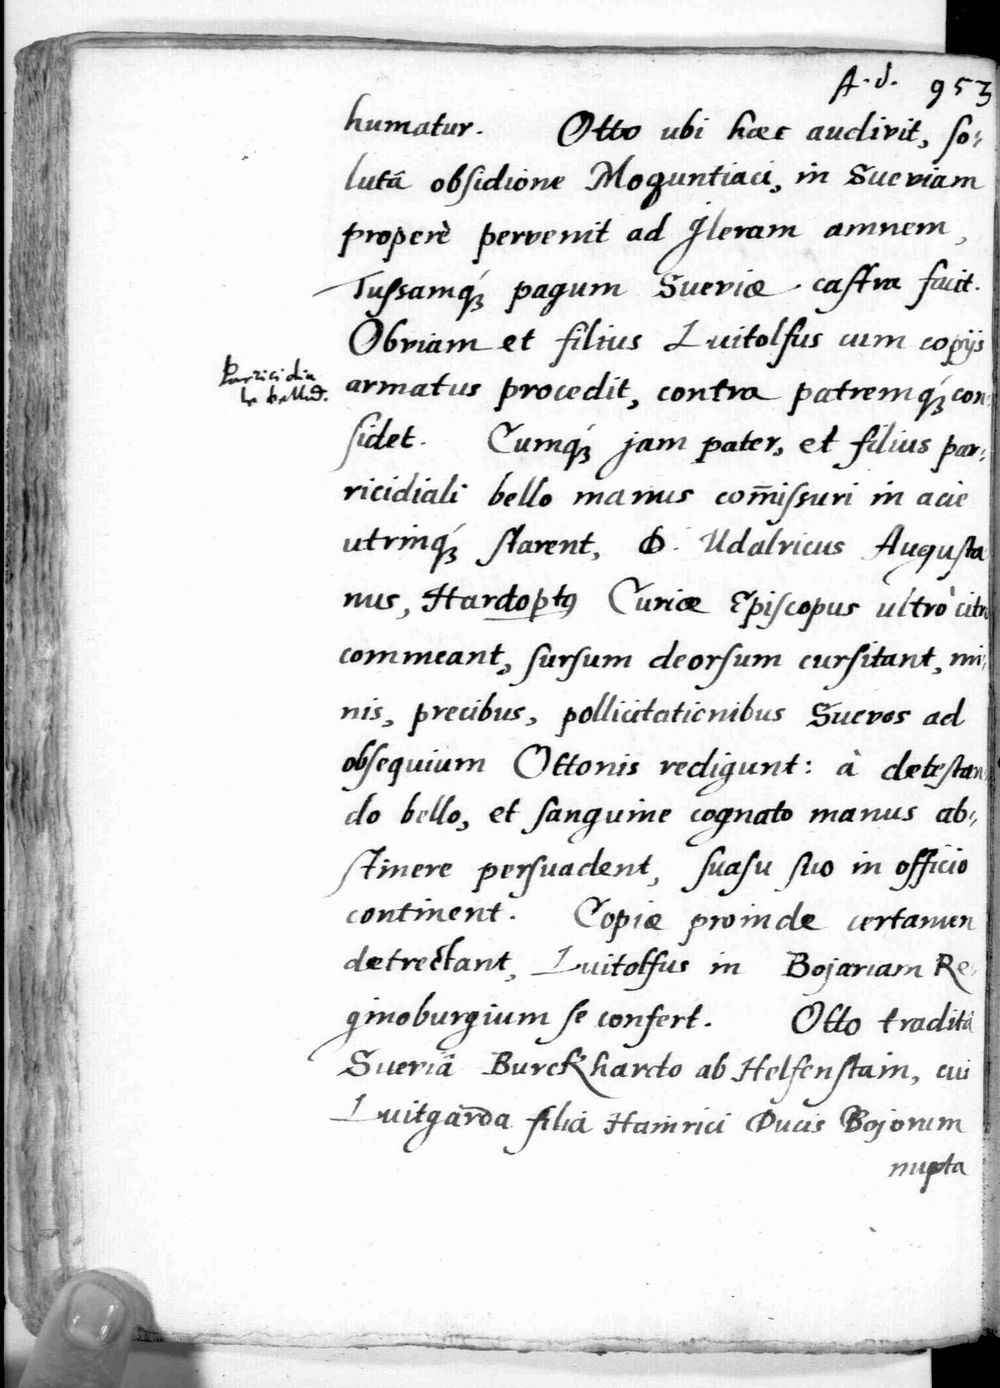 A. d. 953
humatur. Otto ubi haec audivit, so-
lutâ obsidione Moguntiaci, in Sueviam
properè pervenit ad Jleram amnem,
Tussamq́; pagum Sueviæ castra facit.
Obviam et filius Luitolfus cum copijs
armatus procedit, contra patremq́; con-
sidet. Cumq́; jam pater, et filius par-
ricidiali bello manus com̄issuri in acie
utrinq́; starent, D. Udalricus Augusta
nus, Hardopt9 Curiæ Episcopus ultrò citro
commeant, sursum deorsum cursitant, mi-
nis, precibus, pollicitationibus Suevos ad
obsequium Ottonis redigunt: à detestan-
do bello, et sanguine cognato manus ab-
stinere persuadent, suasu suo in officio
continent. Copiæ proinde certamen
detrectant, Luitolfus in Bojariam Re-
ginoburgium se confert. Otto traditâ
Sueviâ Burckhardo ab Helfenstain, cui
Luitgarda filia Hainrici Ducis Bojorum
nupta
Parricidia
le bellud.